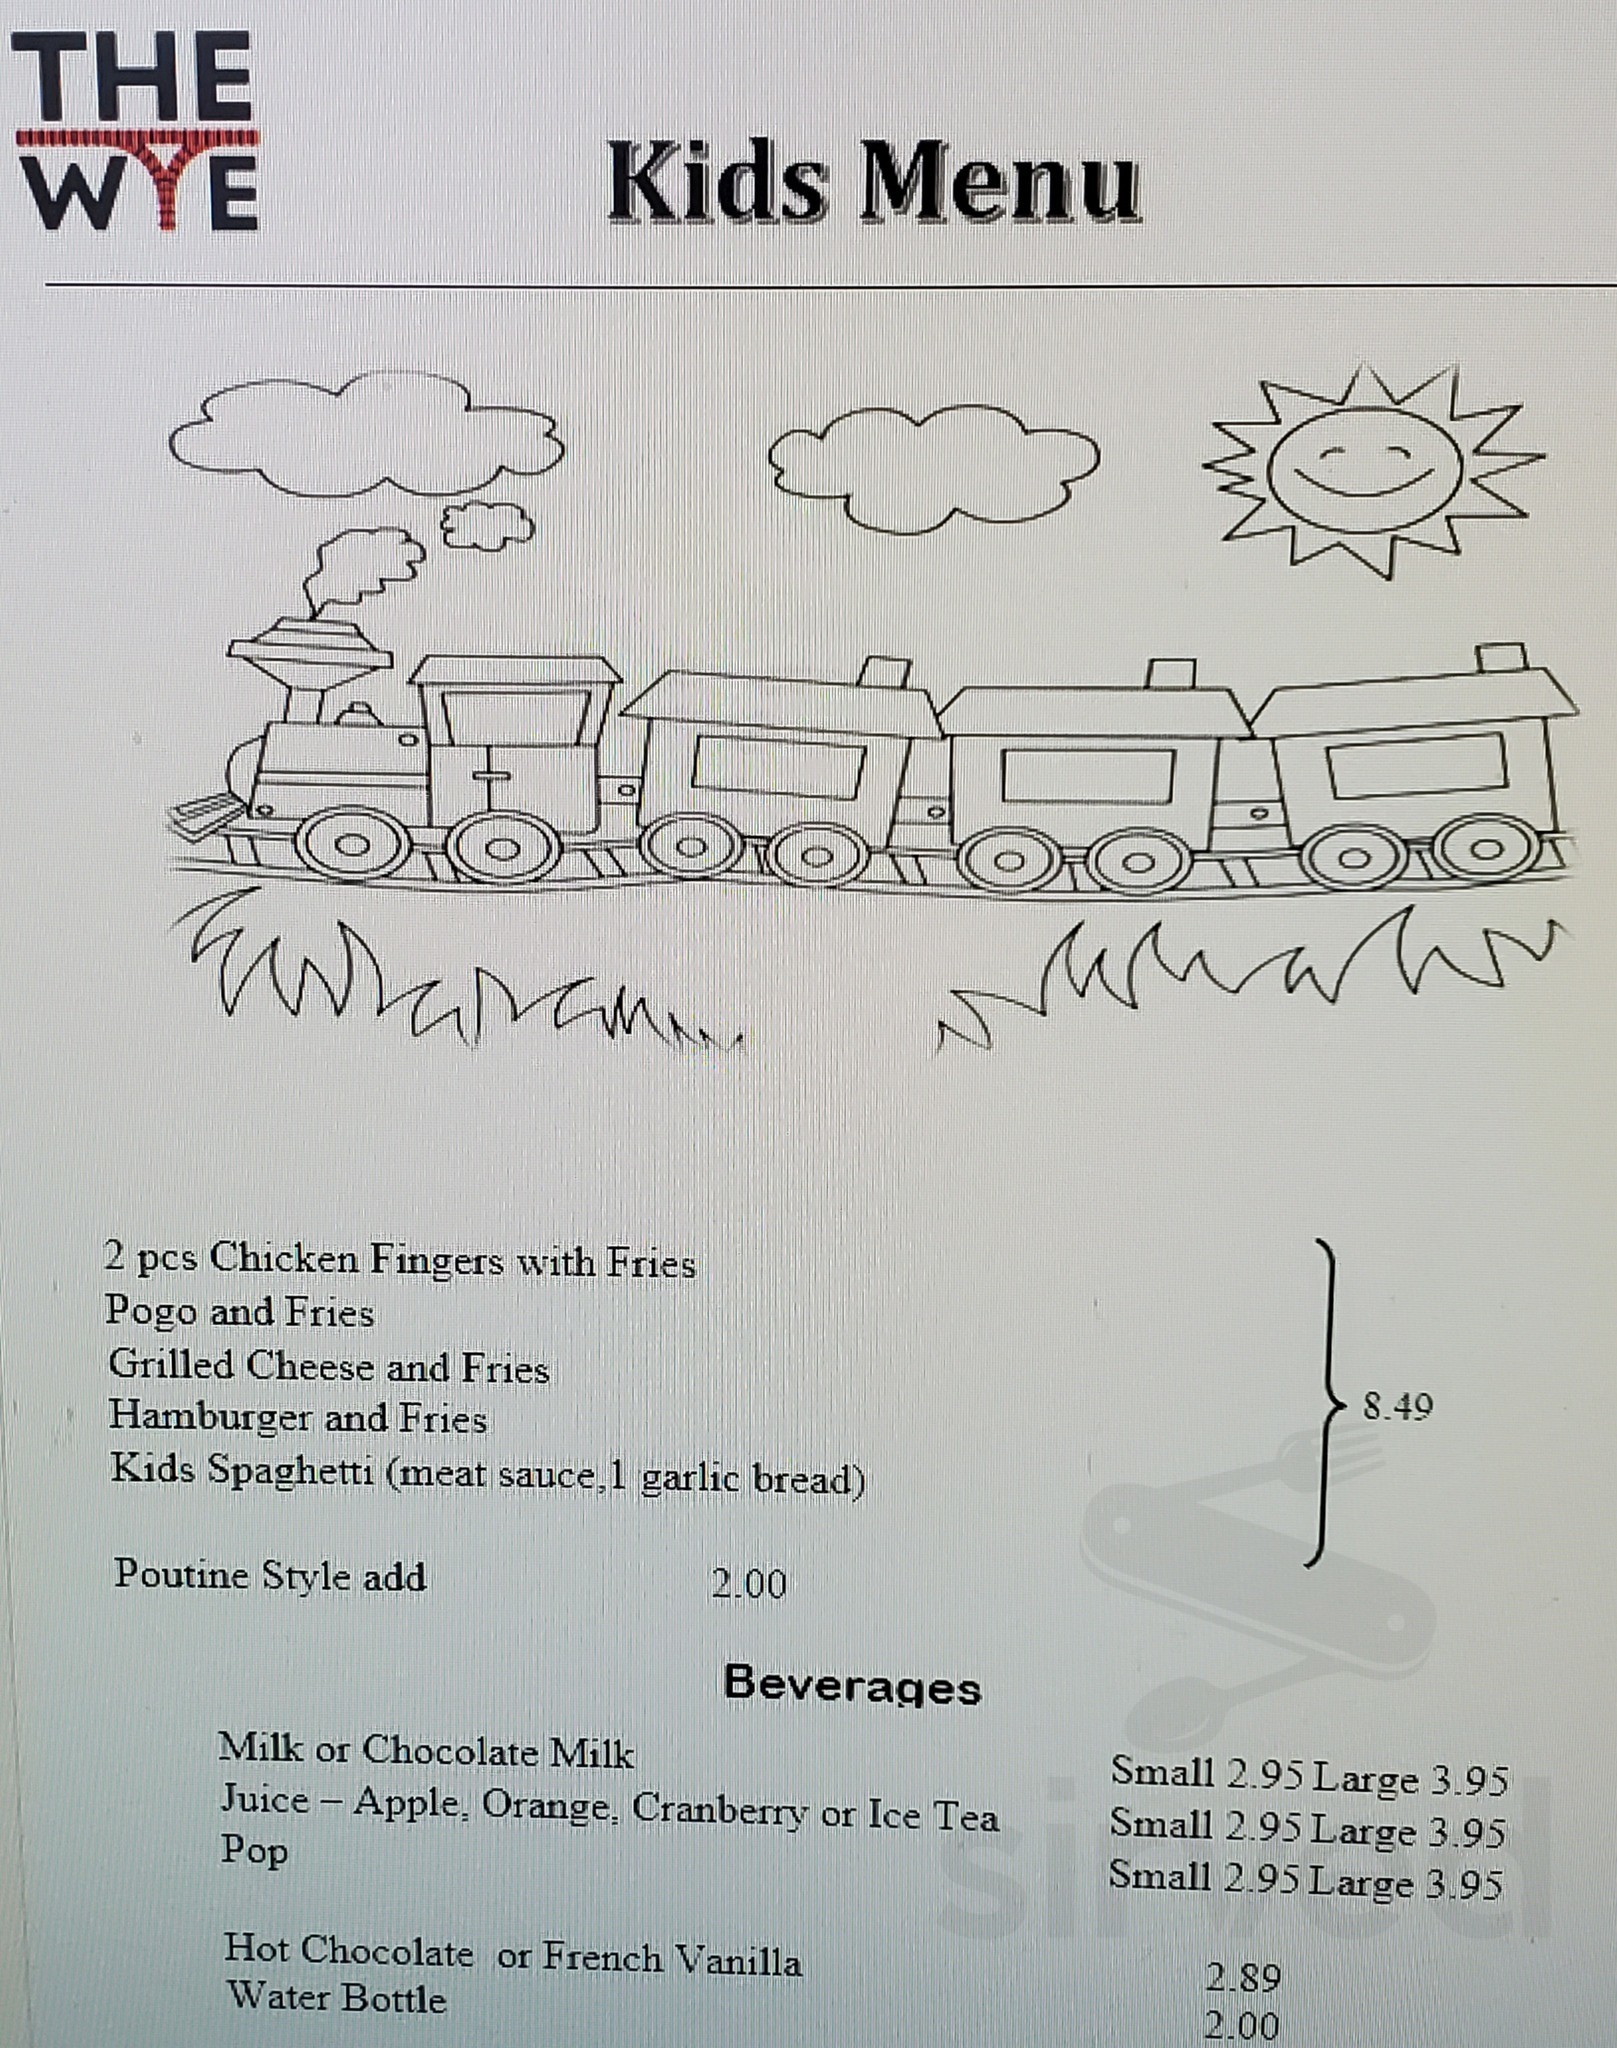 THE
WYE
Kids Menu
2 pcs Chicken Fingers with Fries
Pogo and Fries
Grilled Cheese and Fries
Hamburger and Fries
8.49
Kids Spaghetti (meat sauce,1 garlic bread)
Poutine Style add 2.00
Beverages
Milk or Chocolate Milk Small 2.95 Large 3.95
Juice – Apple, Orange, Cranberry or Ice Tea Small 2.95 Large 3.95
Pop Small 2.95 Large 3.95
sirved
Hot Chocolate or French Vanilla 2.89
Water Bottle 2.00